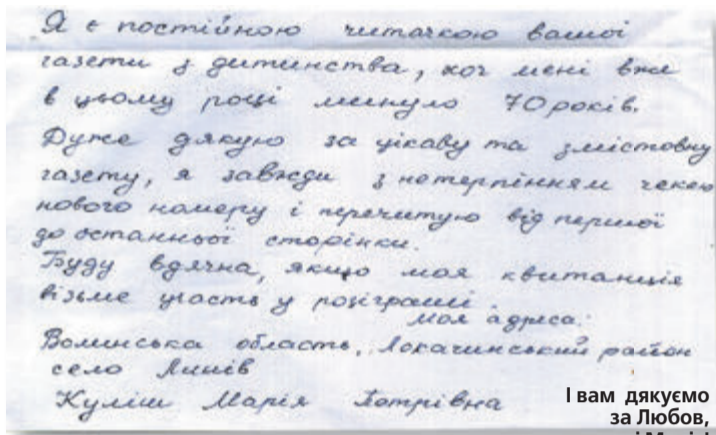 Я є постійною читачкою вашої
газети з дитинства, хоч мені вже
в цьому році минуло 70 років.
Дуже дякую за цікаву та змістовну
газету, я завжди з нетерпінням чекаю
нового номеру і перечитую від першої
до останньої сторінки.
Буду вдячна, якщо моя квитанція
візьме участь у розіграші.
моя адреса:
Волинська область, Локачинський район
село Линів
Куліш Марія Петрівна
І вам дякуємо
за Любов,